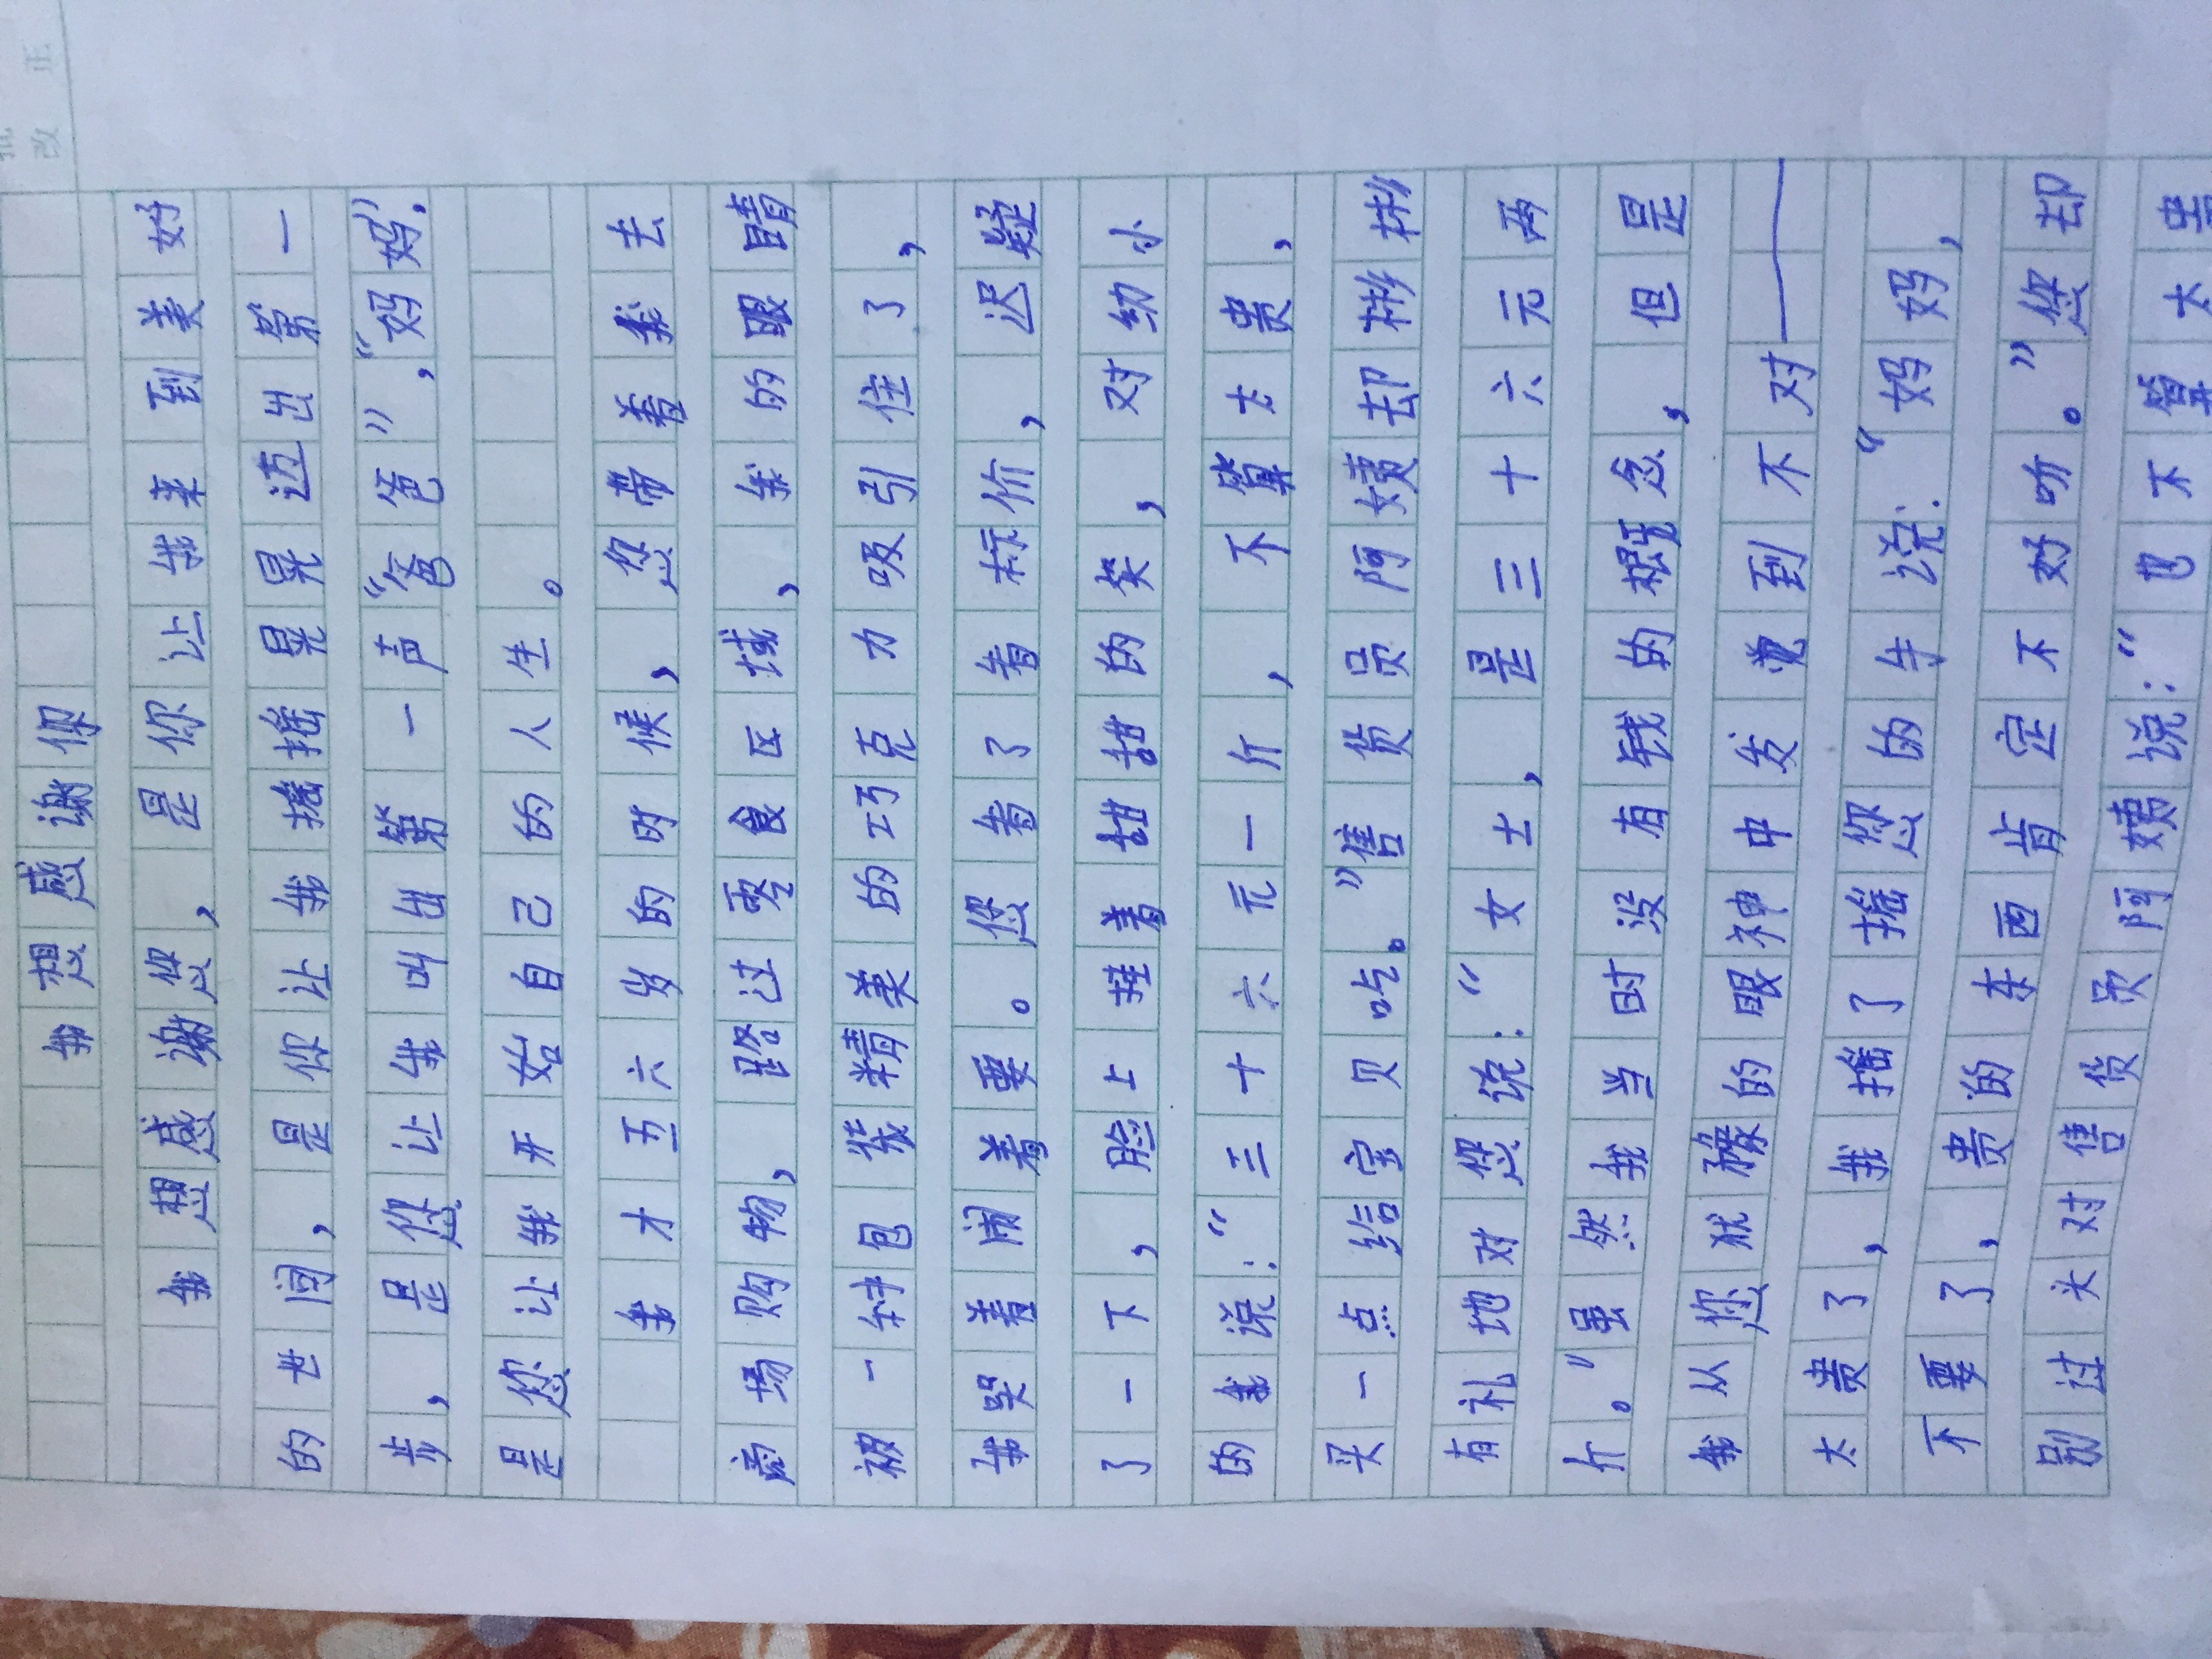 批改 正
我想感谢你
我想感谢您,是你让我来到美好
的世间,是你让我摇摇晃晃迈出第一
步,是您让我叫出第一声“爸爸”,“妈妈”,
是您让我开始自己的人生。
我才五六岁的时候,您带着我去
商场购物,路过零食区域,我的眼睛
被一封包装精美的巧克力吸引住了,
我哭着闹着要。您看了看标价,迟疑
了一下,脸上挂着甜甜的笑,对幼小
的我说:“三十六元一介,不算太贵,
买一点给宝贝吃。”售货员阿姨却彬彬
有礼地对您说:“女士,是三十六元两
介。”虽然我当时没有钱的概念,但是
我从您犹豫的眼神中发觉到不对——
太贵了,我摇了摇您的手说:“妈妈,
不要了,贵的东西肯定不好吃。”您却
别过头对售货员阿姨说:“也不算太贵